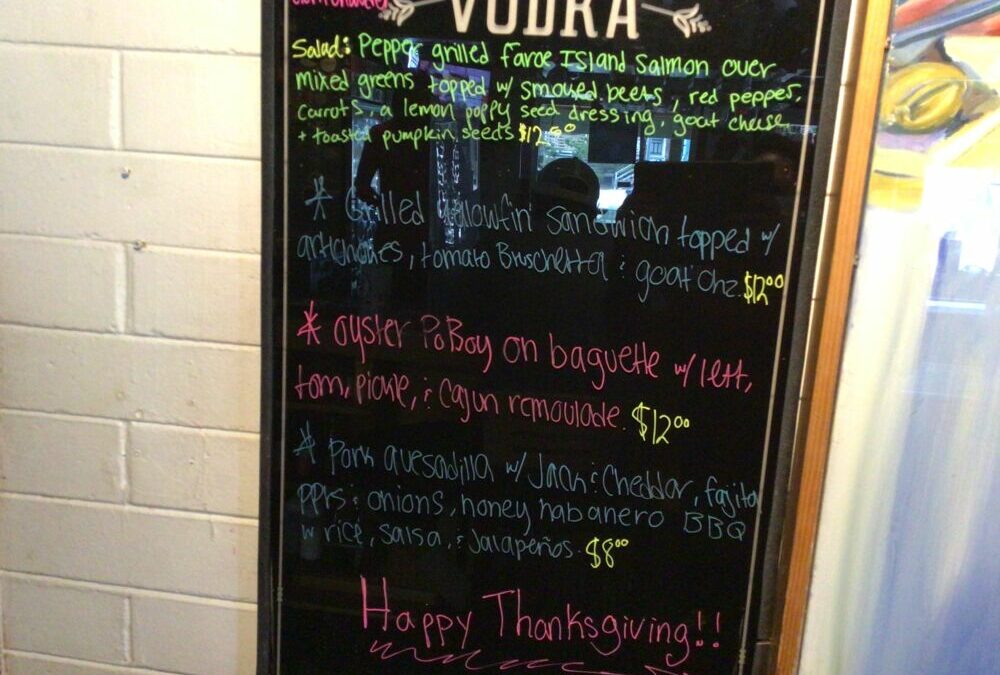 VODKA
Salad: Pepper grilled Faroe Island Salmon over
mixed greens topped w/ smoked beets, red pepper,
carrots, a lemon poppy seed dressing, goat cheese
+ toasted pumpkin seeds $12.00
* Grilled Yellowfin sandwich topped w/
artichokes, tomato Bruschetta & goat chz. $12.00
* Oyster PoBoy on baguette w/ lett,
tom, pickle, & Cajun remoulade. $12.00
* Pork quesadilla w/ Jack & Cheddar, fajita
pprs & onions, honey habanero BBQ
w rice, salsa, & Jalapeños. $8.00
Happy Thanksgiving!!